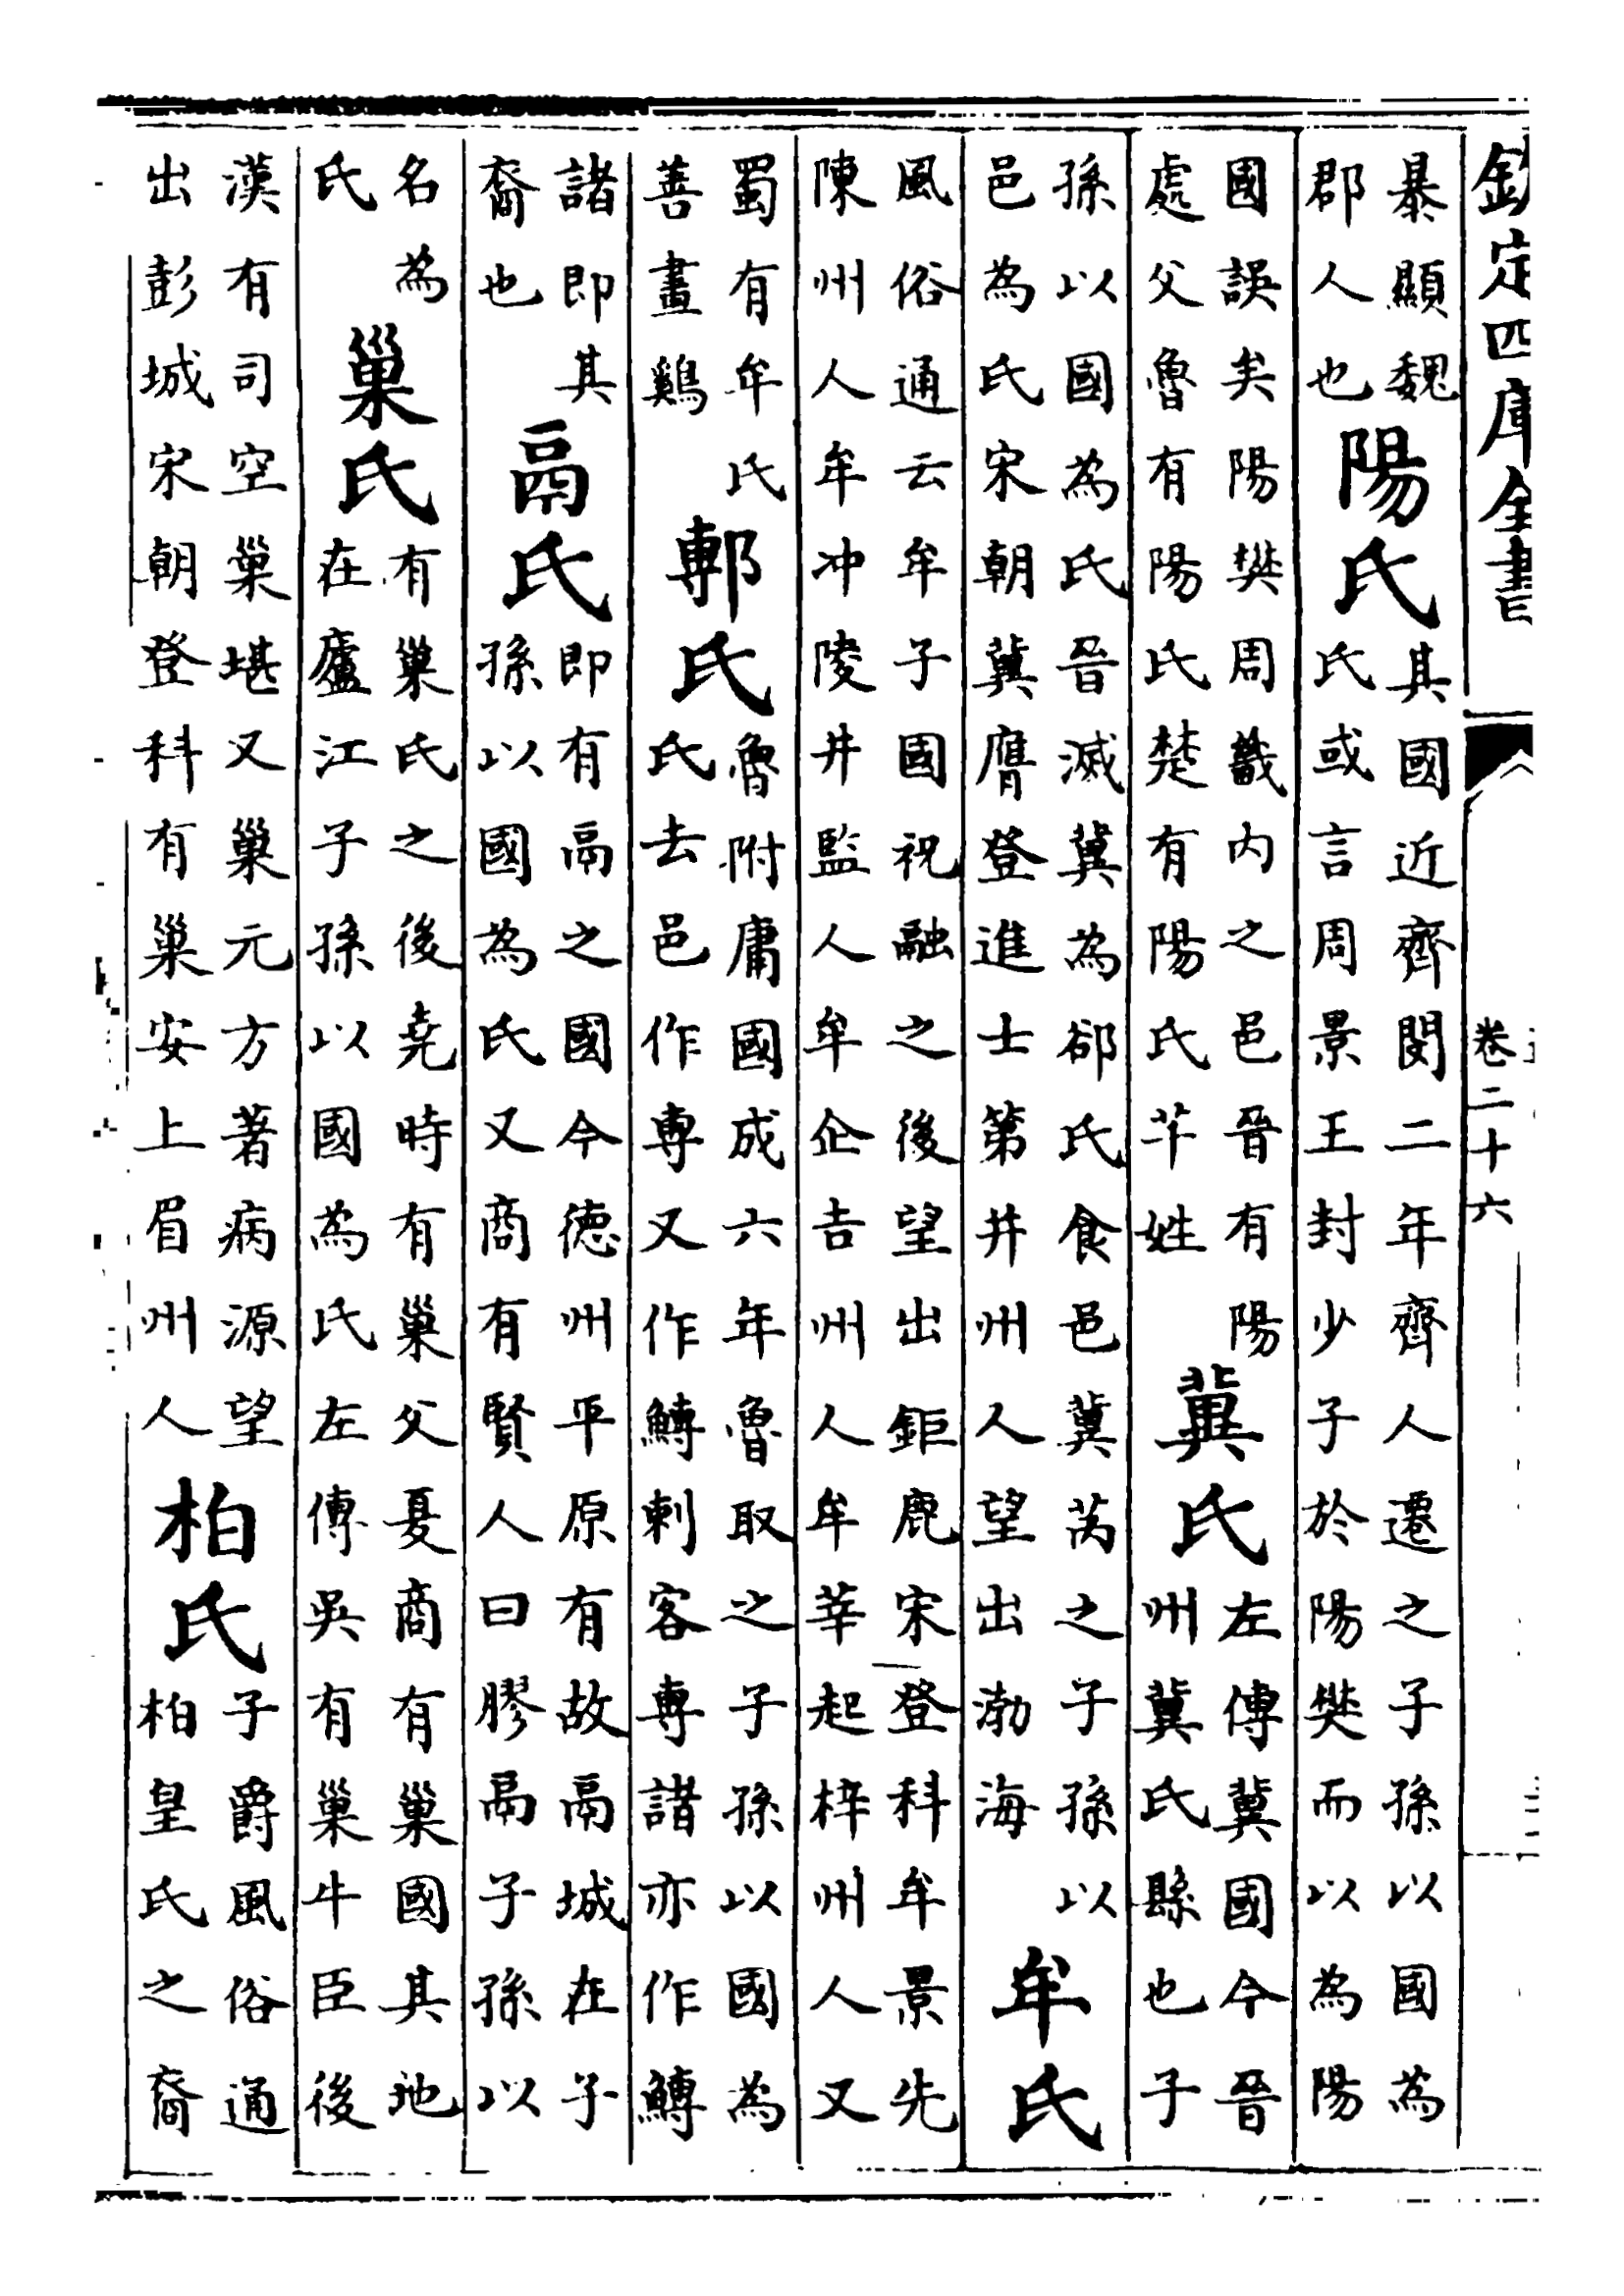 欽定四庫全書
卷二十六
暴顯魏
郡人也
陽氏
其國近齊閔二年齊人遷之子孫以國為
氏或言周景王封少子於陽樊而以為陽
國誤矣陽樊周畿内之邑晉有陽
處父魯有陽氏楚有陽氏芊姓
冀氏
左傳冀國今晉
州冀氏縣也子
孫以國為氏晉滅冀為郤氏食邑冀芮之子孫以
邑為氏宋朝冀膺登進士第井州人望出渤海
牟氏
風俗通云牟子國祝融之後望出鉅鹿宋登科牟景先
陳州人牟冲陵井監人牟企吉州人牟莘起梓州人又
蜀有牟氏
善畫鷄
鄟氏
魯附庸國成六年魯取之子孫以國為
氏去邑作専又作鱄刺客専諸亦作鱄
諸即其
裔也
鬲氏
即有鬲之國今徳州平原有故鬲城在子
孫以國為氏又商有賢人曰膠鬲子孫以
名為
氏
巢氏
有巢氏之後堯時有巢父夏商有巢國其地
在廬江子孫以國為氏左傳吳有巢牛臣後
漢有司空巢堪又巢元方著病源望
出彭城宋朝登科有巢安上眉州人
柏氏
子爵風俗通
柏皇氏之裔